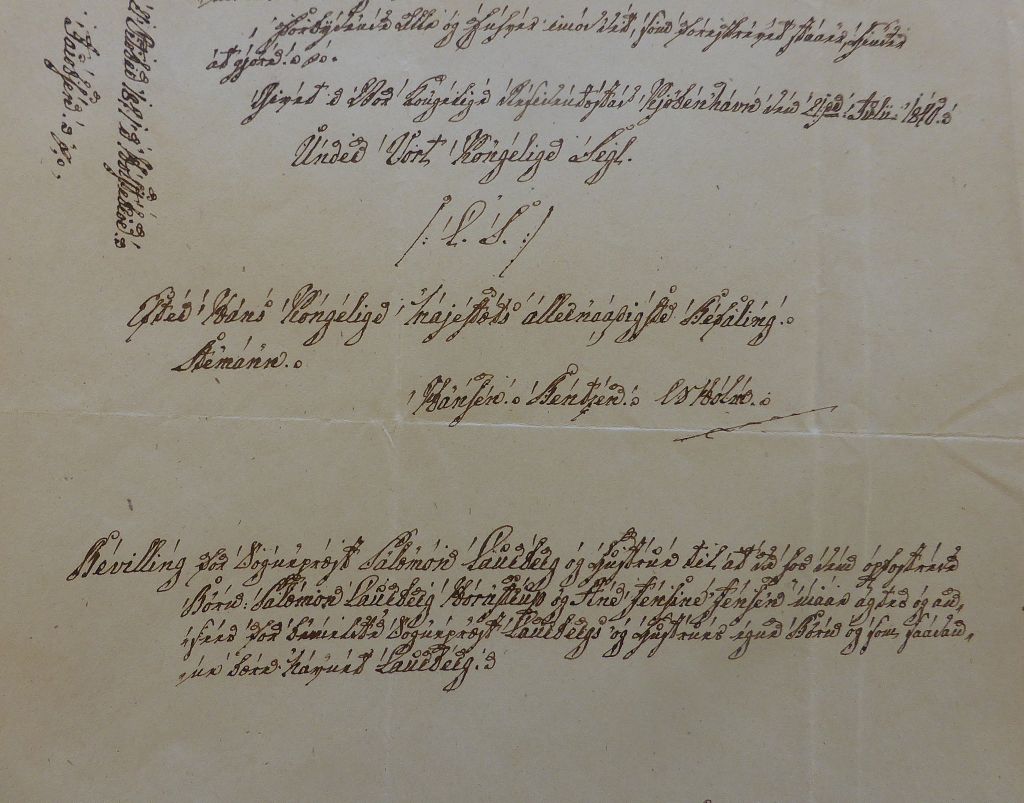 Forbydende Alle og Enhver imod det, som foreskrevet staaer, Hinder
at gjøre.
Givet i Vor Kongelige Residentsstad Kjøbenhavn den 21de Julii 1840.
Under Vort Kongelige Segl.
/: L. S. :/
Efter Hans Kongelige Majestæts allernaadigste Befaling.
Stemann.
Hansen. Bentzen. Holm.
Bevilling for Sognepræst Salomon Laueberg og Hustrue til at de for dem opfostrede
Børn: Salomon Laueberg Kornstrup og Ane Jensine Jensen maae agtes og an-
sees for bemeldte Sognepræst Lauebergs og Hustrues egne Børn og som saadan-
ne bære Navnet Laueberg.